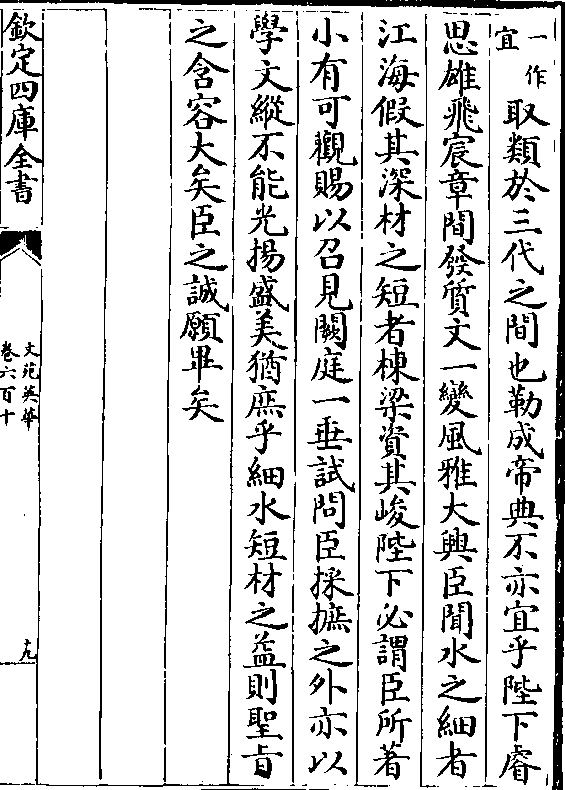 一作
宜
取類於三代之間也勒成帝典不亦宜乎陛下睿
思雄飛宸章間發質文一變風雅大興臣聞水之細者
江海假其深材之短者棟梁資其峻陛下必謂臣所著
小有可觀賜以召見闕庭一垂試問臣採摭之外亦以
學文縱不能光揚盛美猶庶乎細水短材之益則聖旨
之含容大矣臣之誠願畢矣
欽定四庫全書
文苑英華
卷六百十
九